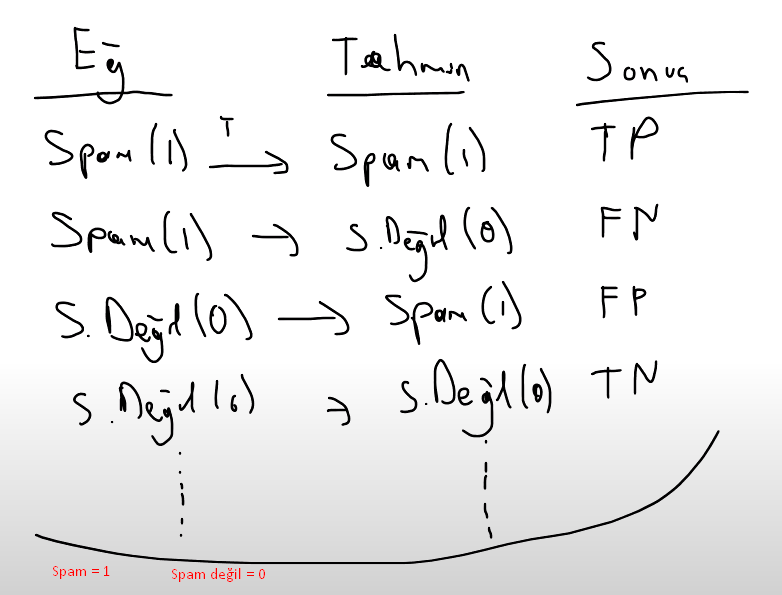 Eğ Tahmin Sonuç
Spam (1) T → Spam (1) TP
Spam (1) → S. Değil (0) FN
S. Değil (0) → Spam (1) FP
S. Değil (0) → S. Değil (0) TN
Spam = 1 Spam değil = 0